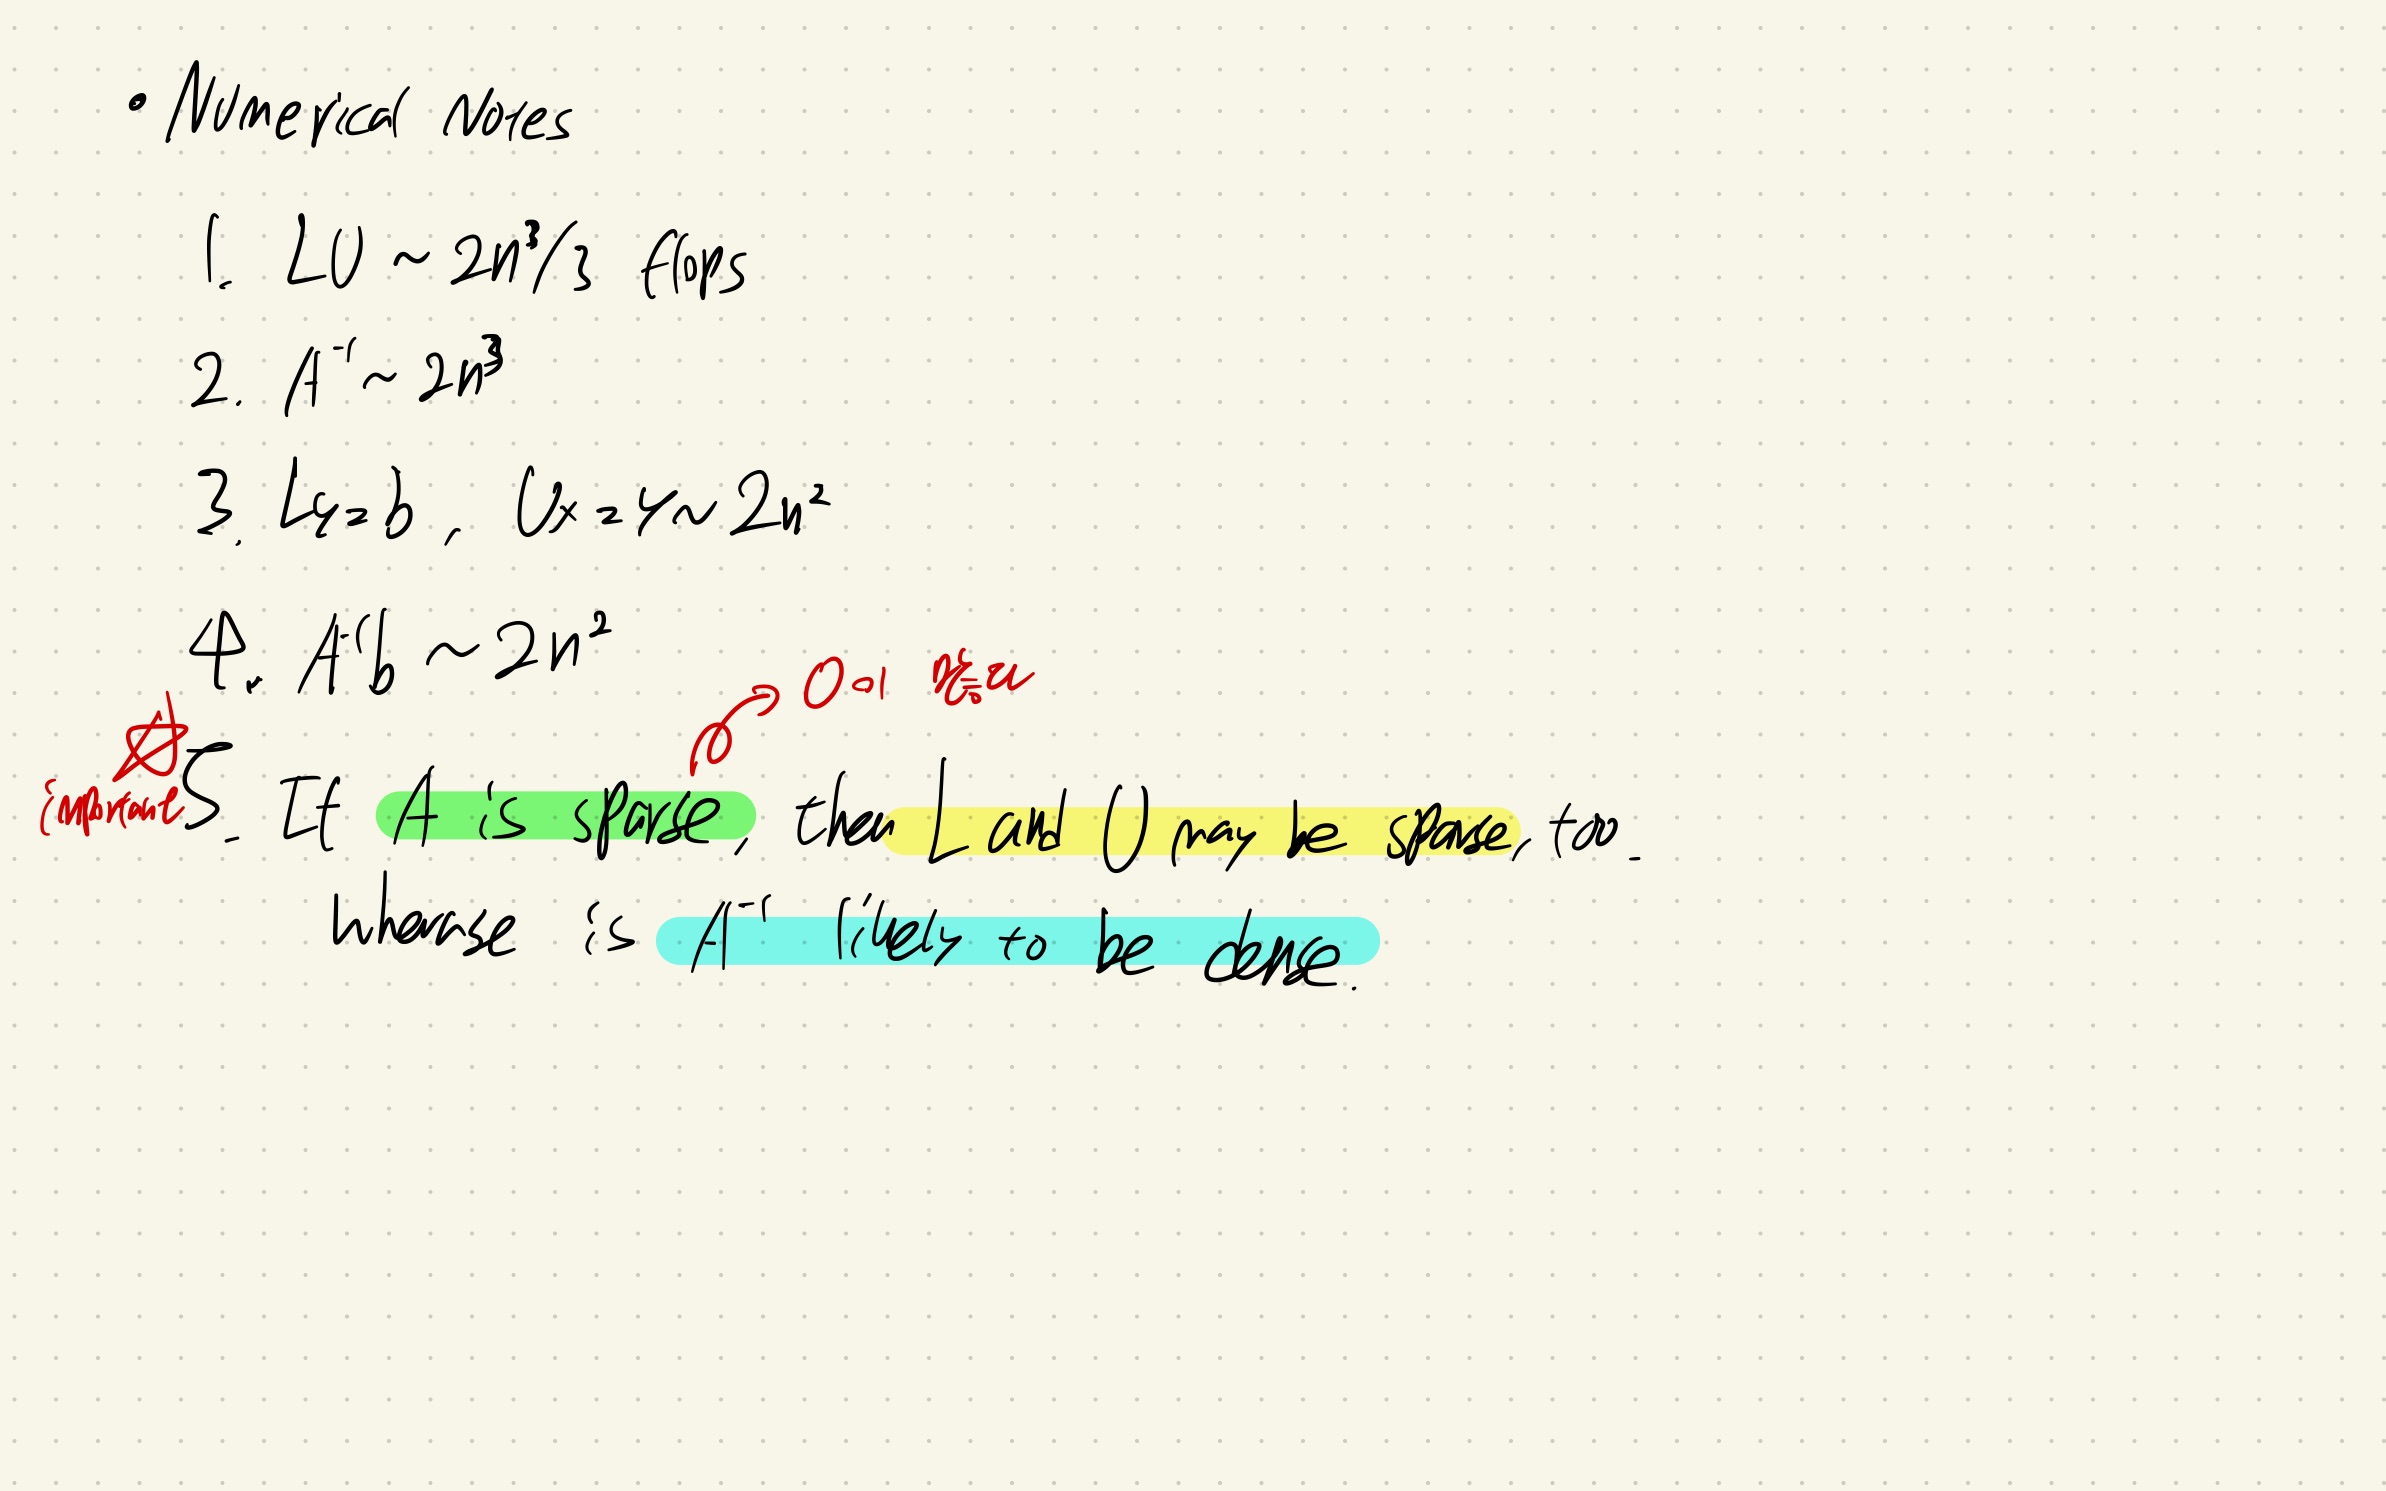 • Numerical Notes
1. LU ~ 2n³/3 flops
2. A⁻¹ ~ 2n³
3. Ly=b, Ux=y ~ 2n²
4. A⁻¹b ~ 2n²
0이 많고
5. If A is sparse, then L and U may be sparse, too.
whearse is A⁻¹ likely to be dense.